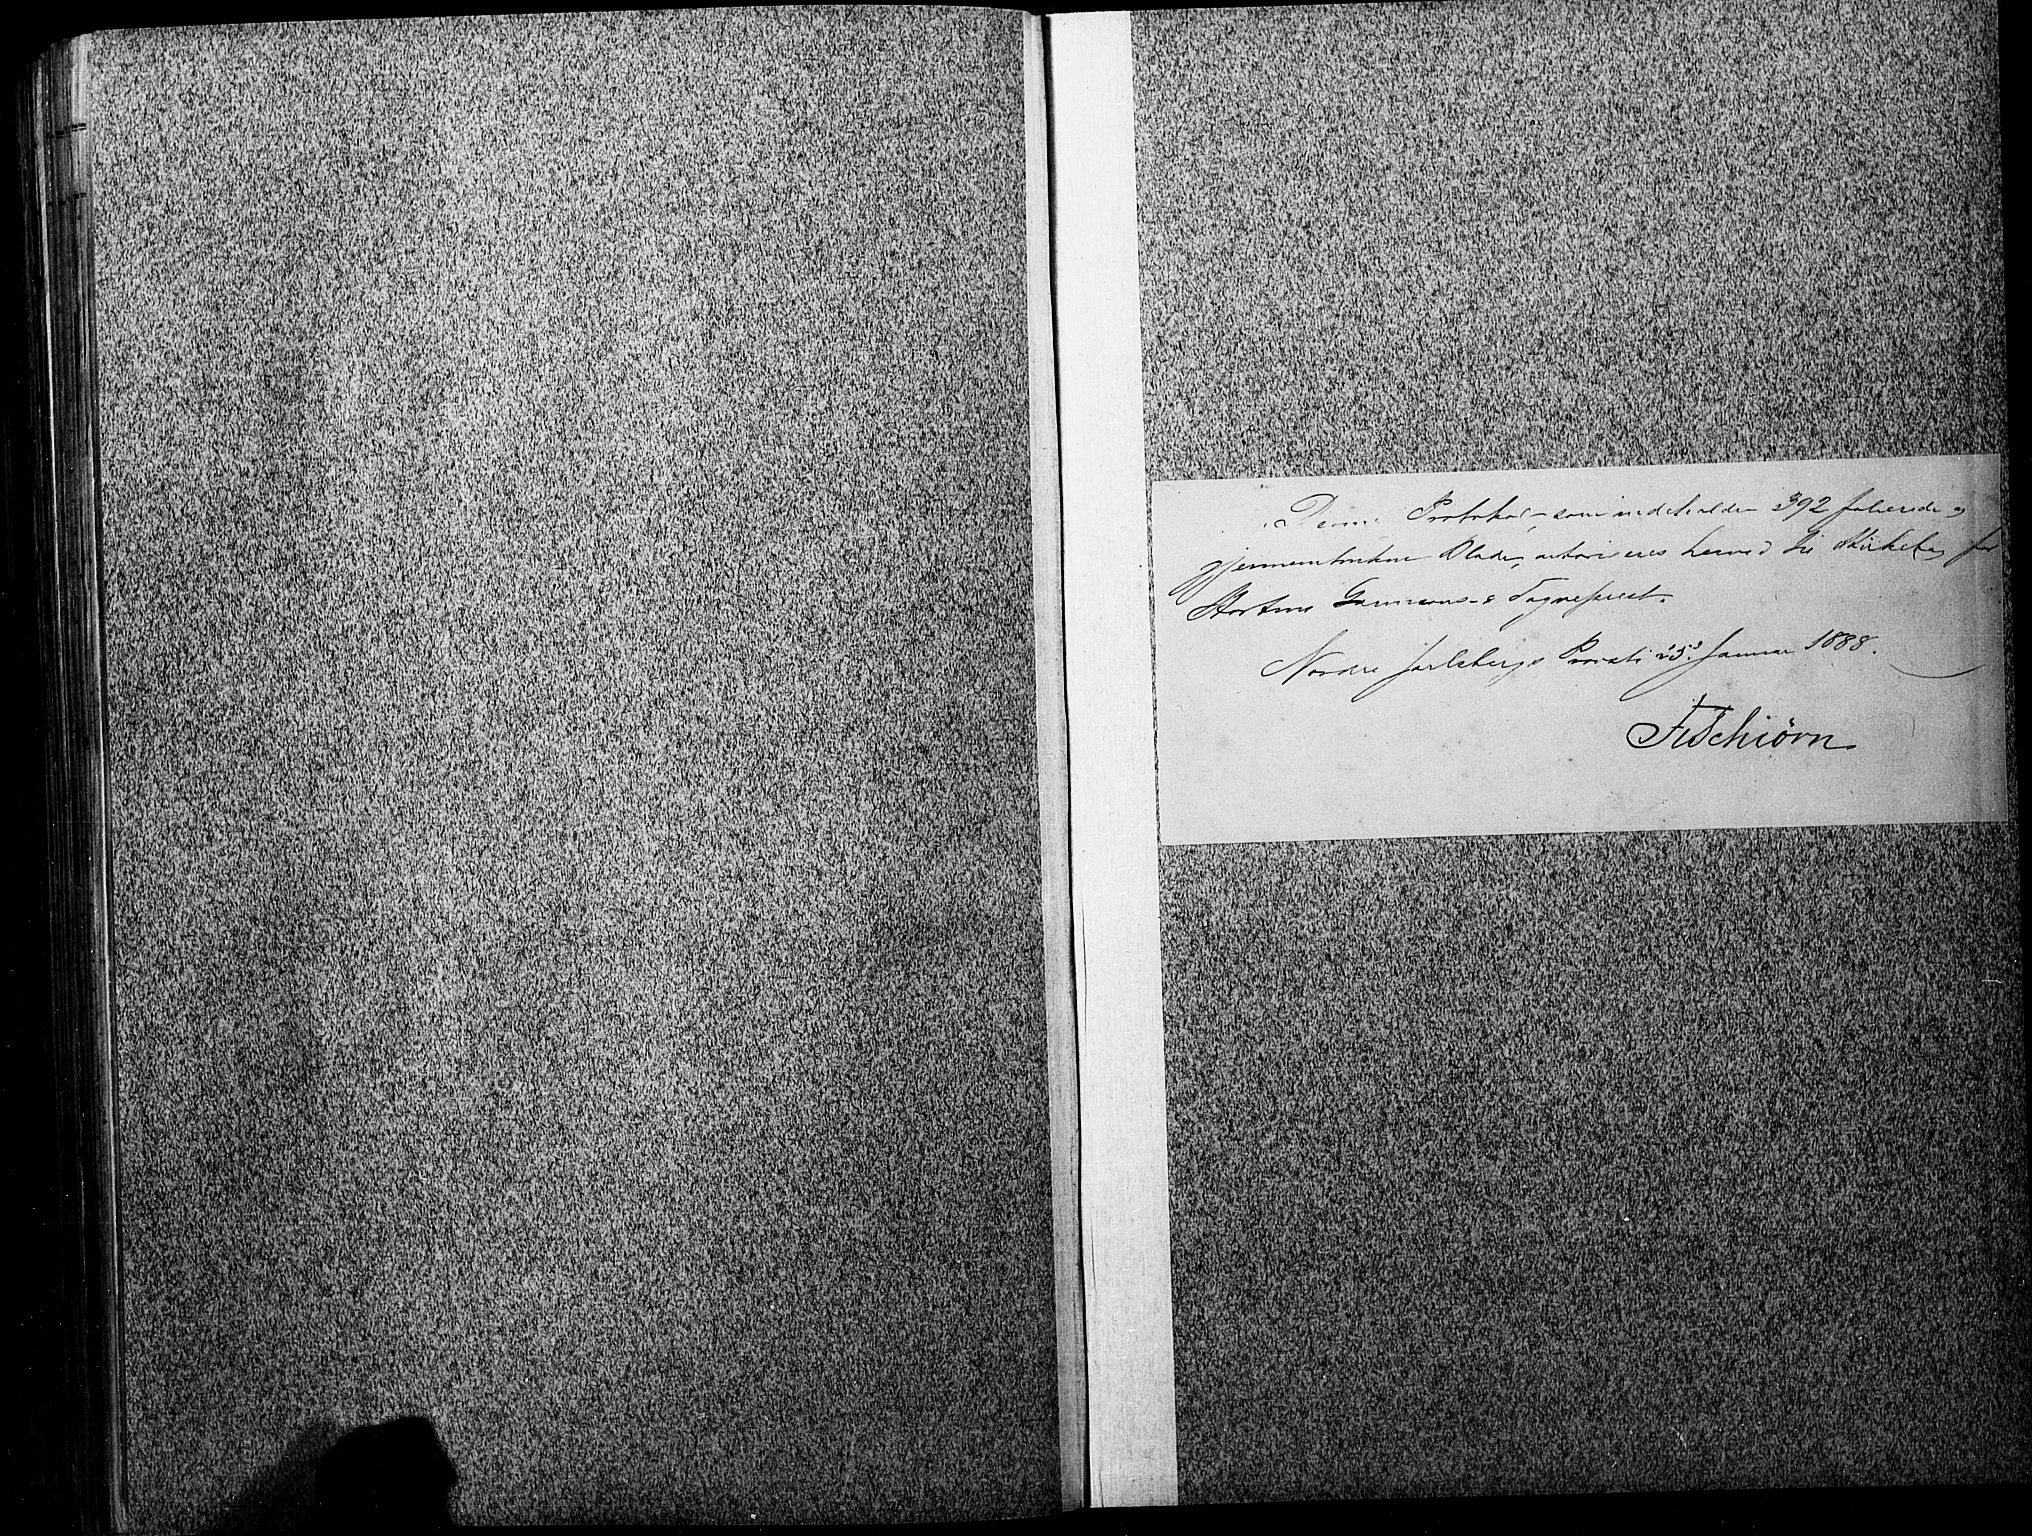 Denne Protokol, som indeholder 392 folierede og
gjennemtrukne Blade, autoriseres herved til Kirkebog for
Hortens Garnisons- & Sognepræst.
Nordre Jarlsbergs Provsti 25. Januar 1888.
F Schiørn